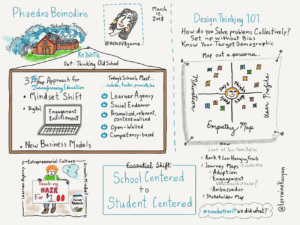 Phaedra Boinodiris
March
2018
@INNOVgames
ReWrite
Out-Thinking Old School
3 Step Approach for
Transforming Education
• Mindset Shift
• Digital
Engagement
Enrichment
• New Business Models
Today's Schools Must...
include, foster, provide, be:
Learner Agency
Social Endeavor
Personalized, relevant,
contextualized
Open-Walled
Competency-based
Entrepreneurial Culture
Learner Agency
Growth Mindset
Touch my
HAIR
For $1.00
Essential Shift
School Centered
to
Student Centered
Design Thinking 101
How do you Solve problems Collectively?
Set up without Bias
Know Your Target Demographic
Map out a persona...
Empathy Map
• Rank 4 Low Hanging Fruit
• Journey Maps
- Adoption
- Engagement
- Ambassador
• Stakeholder Map
we did what?
@lorrainekasyan